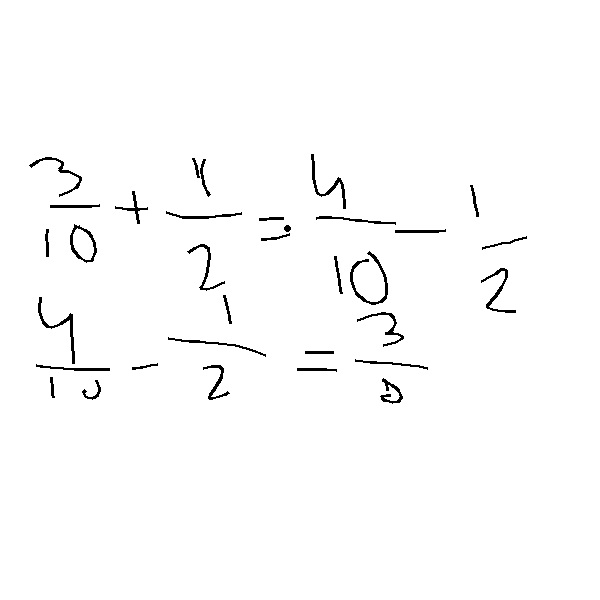 3/10 + 1/2 = 4/10 - 1/2
4/10 - 1/2 = 3/10